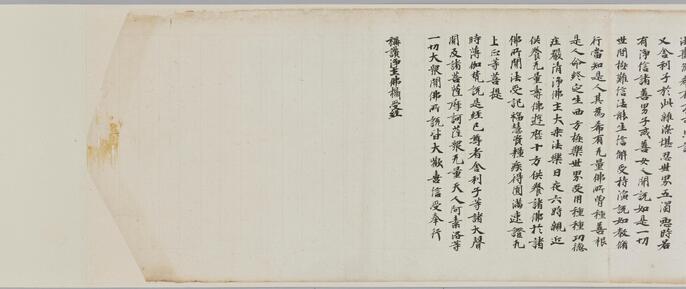 又舍利子於此雜染堪忍世界五濁惡時若
有淨信諸善男子或善女人聞說如是一切
世間極難信法能生信解受持演說如教脩
行當知是人甚為希有无量佛所曾種善根
是人命終定生西方極樂世界受用種種功德
莊嚴清淨佛土大乘法樂日夜六時親近
供養无量壽佛遊歷十方供養諸佛於諸
佛所聞法受記福慧資糧疾得圓滿速證无
上正等菩提
時薄伽梵說是經已尊者舍利子等諸大聲
聞及諸菩薩摩訶薩眾无量天人阿素洛等
一切大眾聞佛所說皆大歡喜信受奉行
稱讚淨土佛攝受經